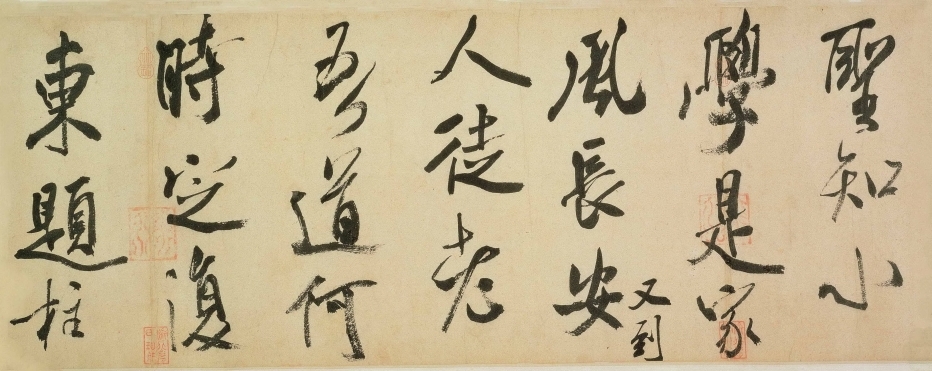 聖知小
學是家
風長安又到
人徒老
吾道何
時定復
東題柱